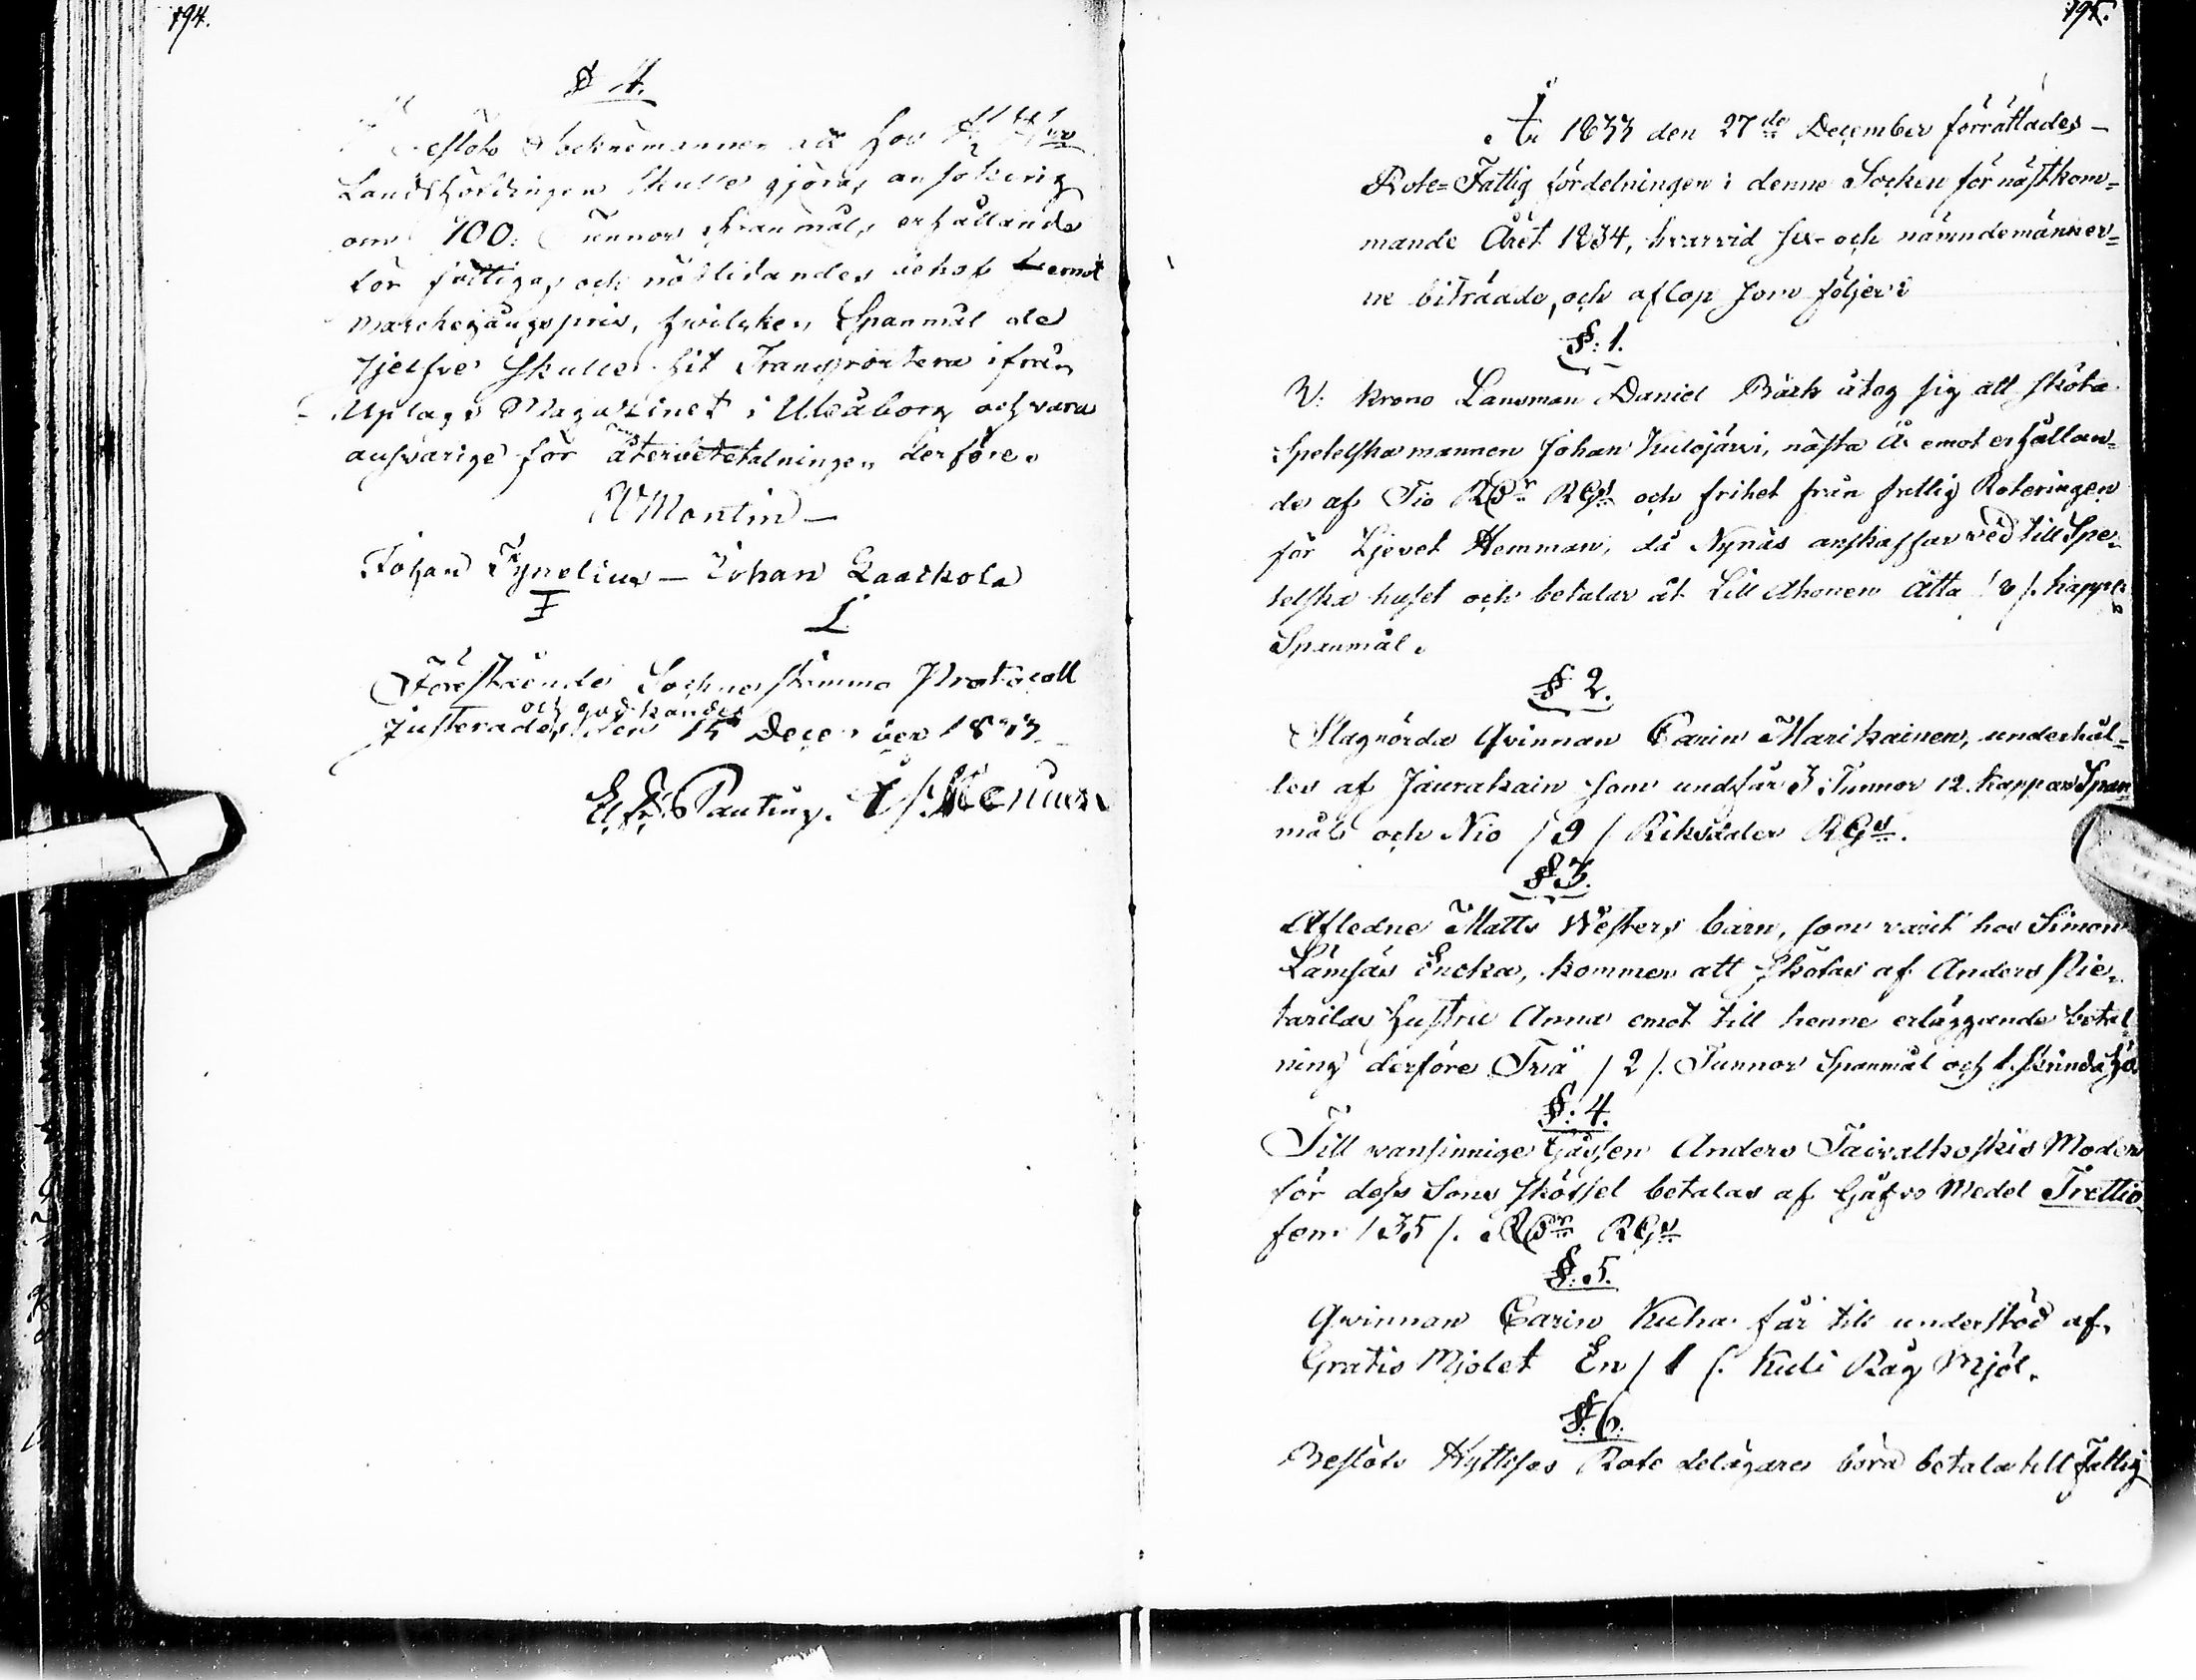 194.
§ 4.
Beslöts Socknemännen att hos
Landshöfdingen skulle göras ansökning
om 100. Tunnor Spanmåls erhållande
för fattigas och nödlidandes behof emot
Markegångspris, hwilken Spanmål de
sjelfve skulle hit Transportera ifrån
Uplags Magazinet i Uleåborg och vara
ansvarige för återbetalningen derföre.
A Montin —
Johan Tynelius — Johan Laackola
I L
Föreståendes Sockne stämmo Protocoll
och godkändes
Justerades den 15 December 1833.
195.
År 1833 den 27de December förrättades —
Rote=Fattig fördelningen i denne Socken för nästkom=
mande Året 1834, hvarvid sex och nämndemänner=
ne biträade, och aflop som följer:
§: 1.
V: Krono Lansman Daniel Bäck åtog sig att sköta
Spetelska mannen Johan Kulojärvi, nästa År emot erhållan=
de af Tio RDr RGs och frihet från fattig Roteringen
för Ljevet Hemman, då Nynäs anskaffar ved till Spe=
telska huset och betalar åt Lill Ahonen Åtta /8/. kappar
Spanmål.
§ 2.
Slagrörda Qvinnan Carin Marikainen, underhål=
les af Jaurakain som undfår 3 Tunnor 12 kappar Span
mål och Nio /9/ Riksdaler RGs.
§ 3.
Afledne Matts Westers barn, som varit hos Simon
Lämsäs Encka, kommer att skötas af Anders Pie=
tarilas hustru Anna emot till henne erläggande betal
ning derföre Två /2/. Tunnor Spanmål och 1. skrinda hö
§: 4.
Till vansinnige Gåssen Anders Taivalkoskis Moder
för dess Sons skötsel betalas af Gåfvo Medel Trettio
fem /35/. RDr RGs
§: 5.
Qvinnan Carin Kuha får till understöd af
Gratis Mjölet En /1/. Kuli Råg Mjöl.
§: 6.
Beslöts Kyttisos Rote delägare böra betala till Fattig